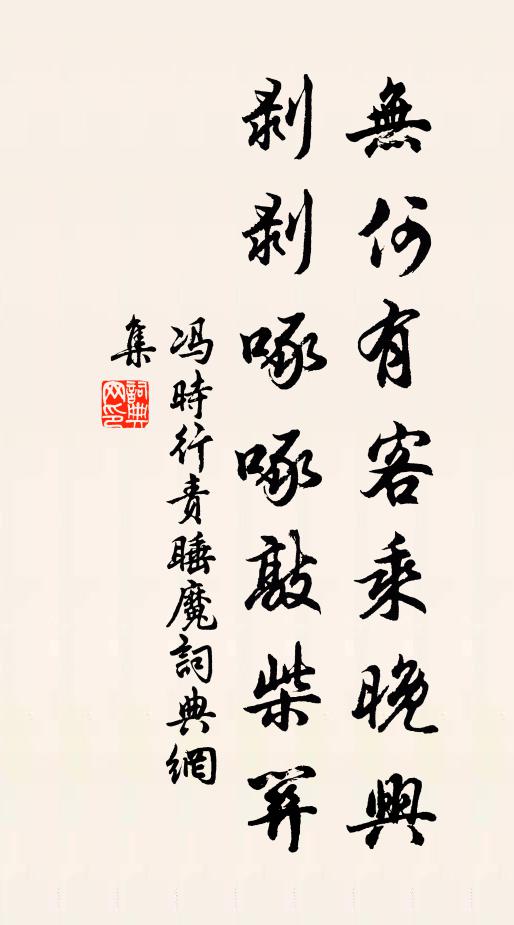 無何有客乘晚興
剥剥啄啄敲柴關
冯時行責睡魔詞典網
集
詞典
网印